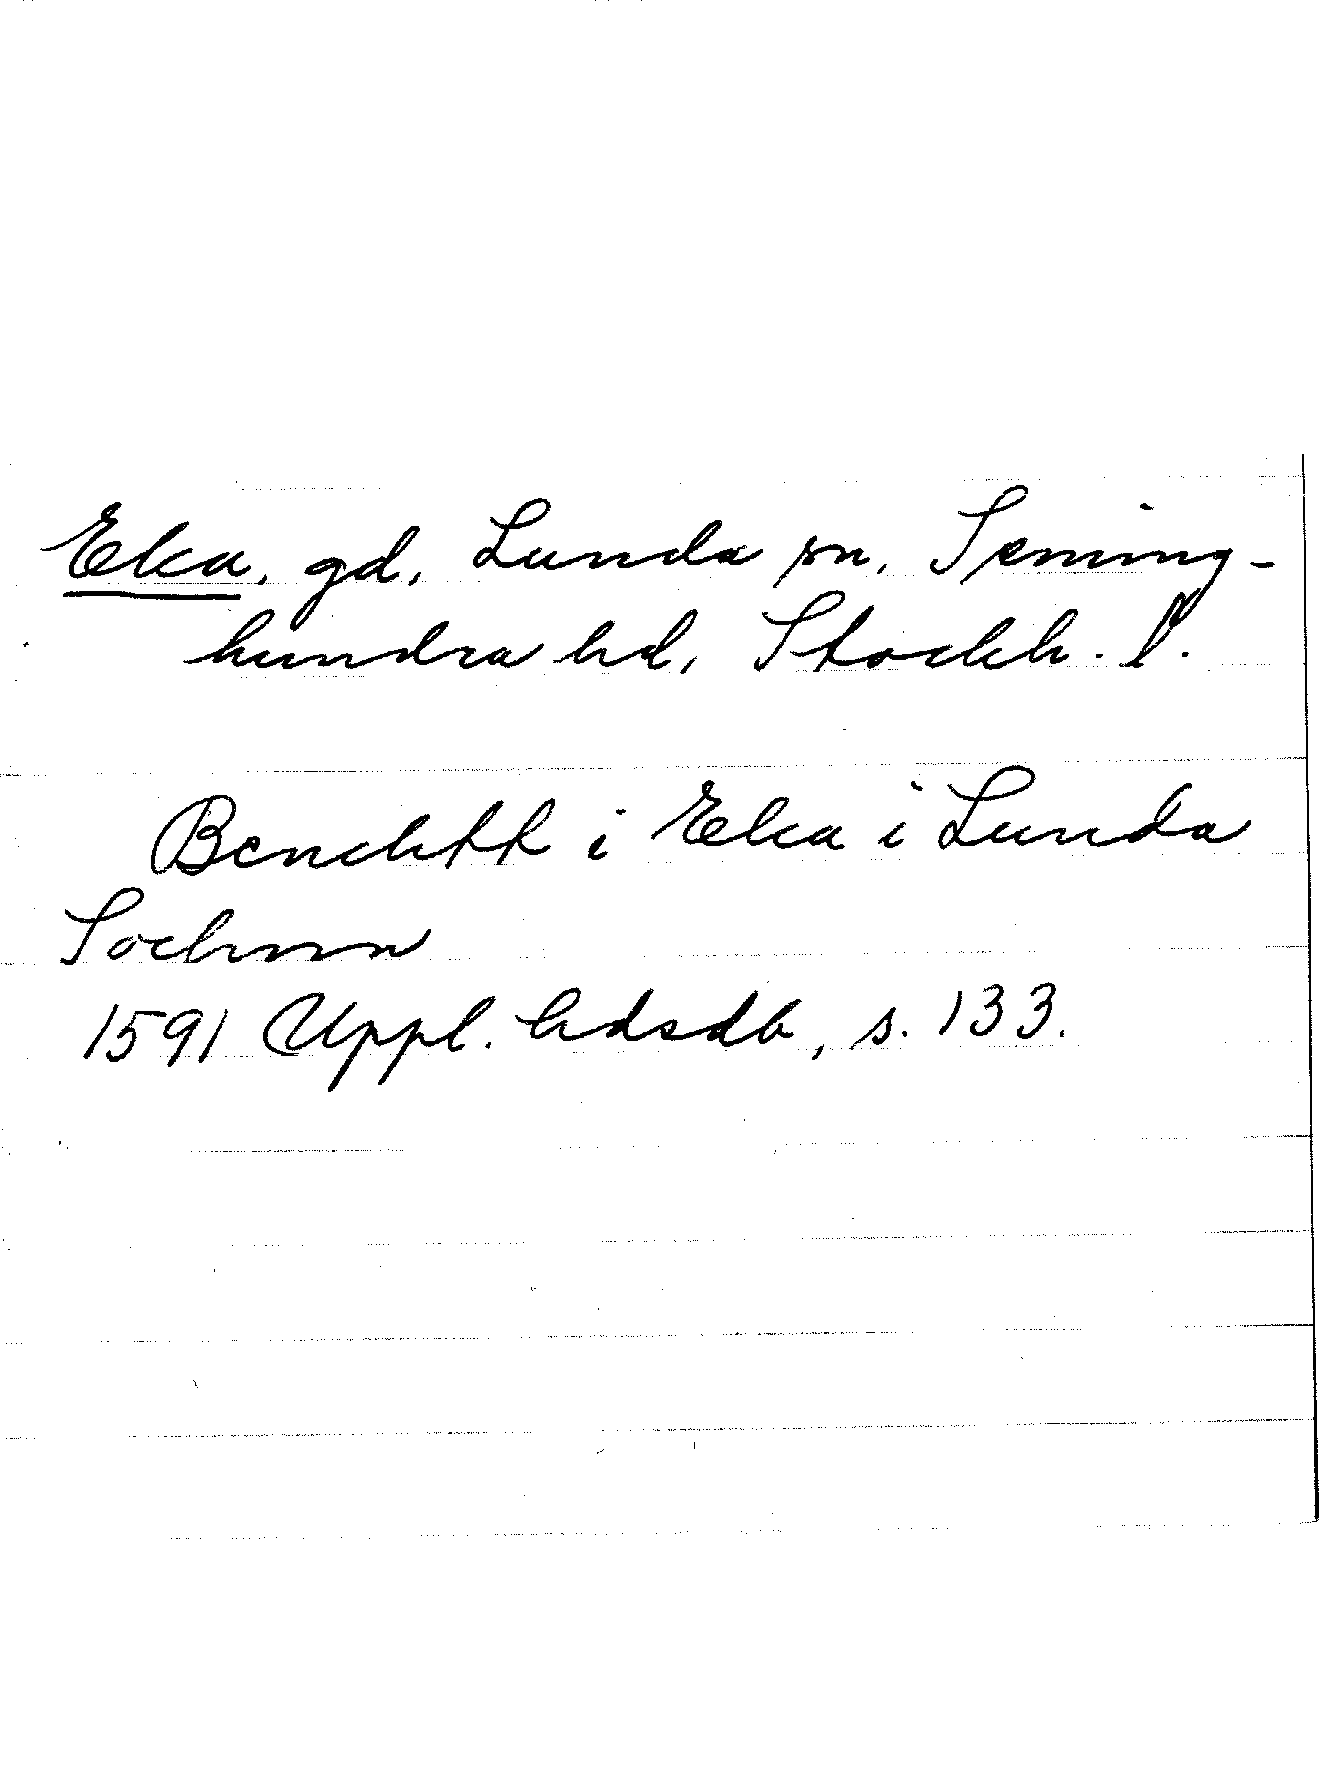 Eka, gd, Lunda sn, Seming-
hundra hd, Stockh. l.
Benchtt i Eka i Lunda
Sochnn
1591 Uppl. hdsdb, s. 133.